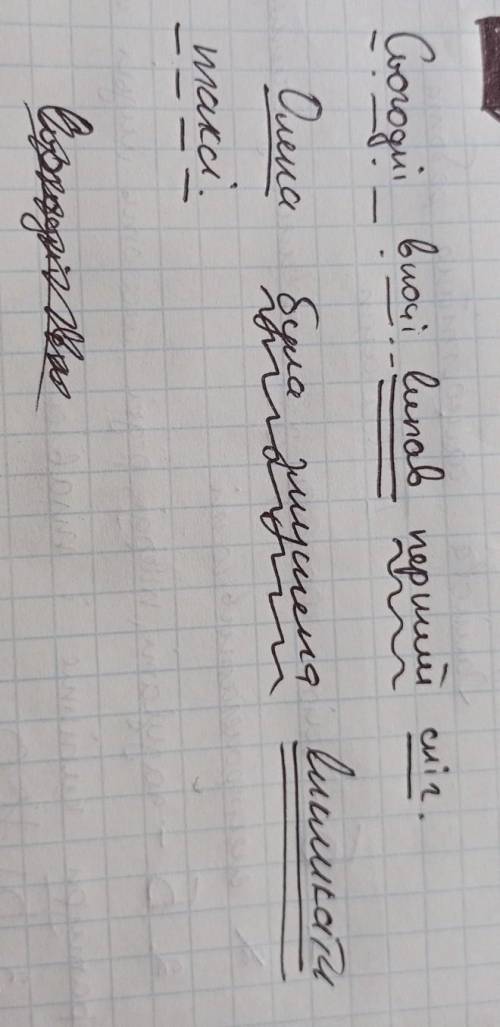 Сьогодні вночі випав перший сніг.
Олена була змушена викликати
таксі.